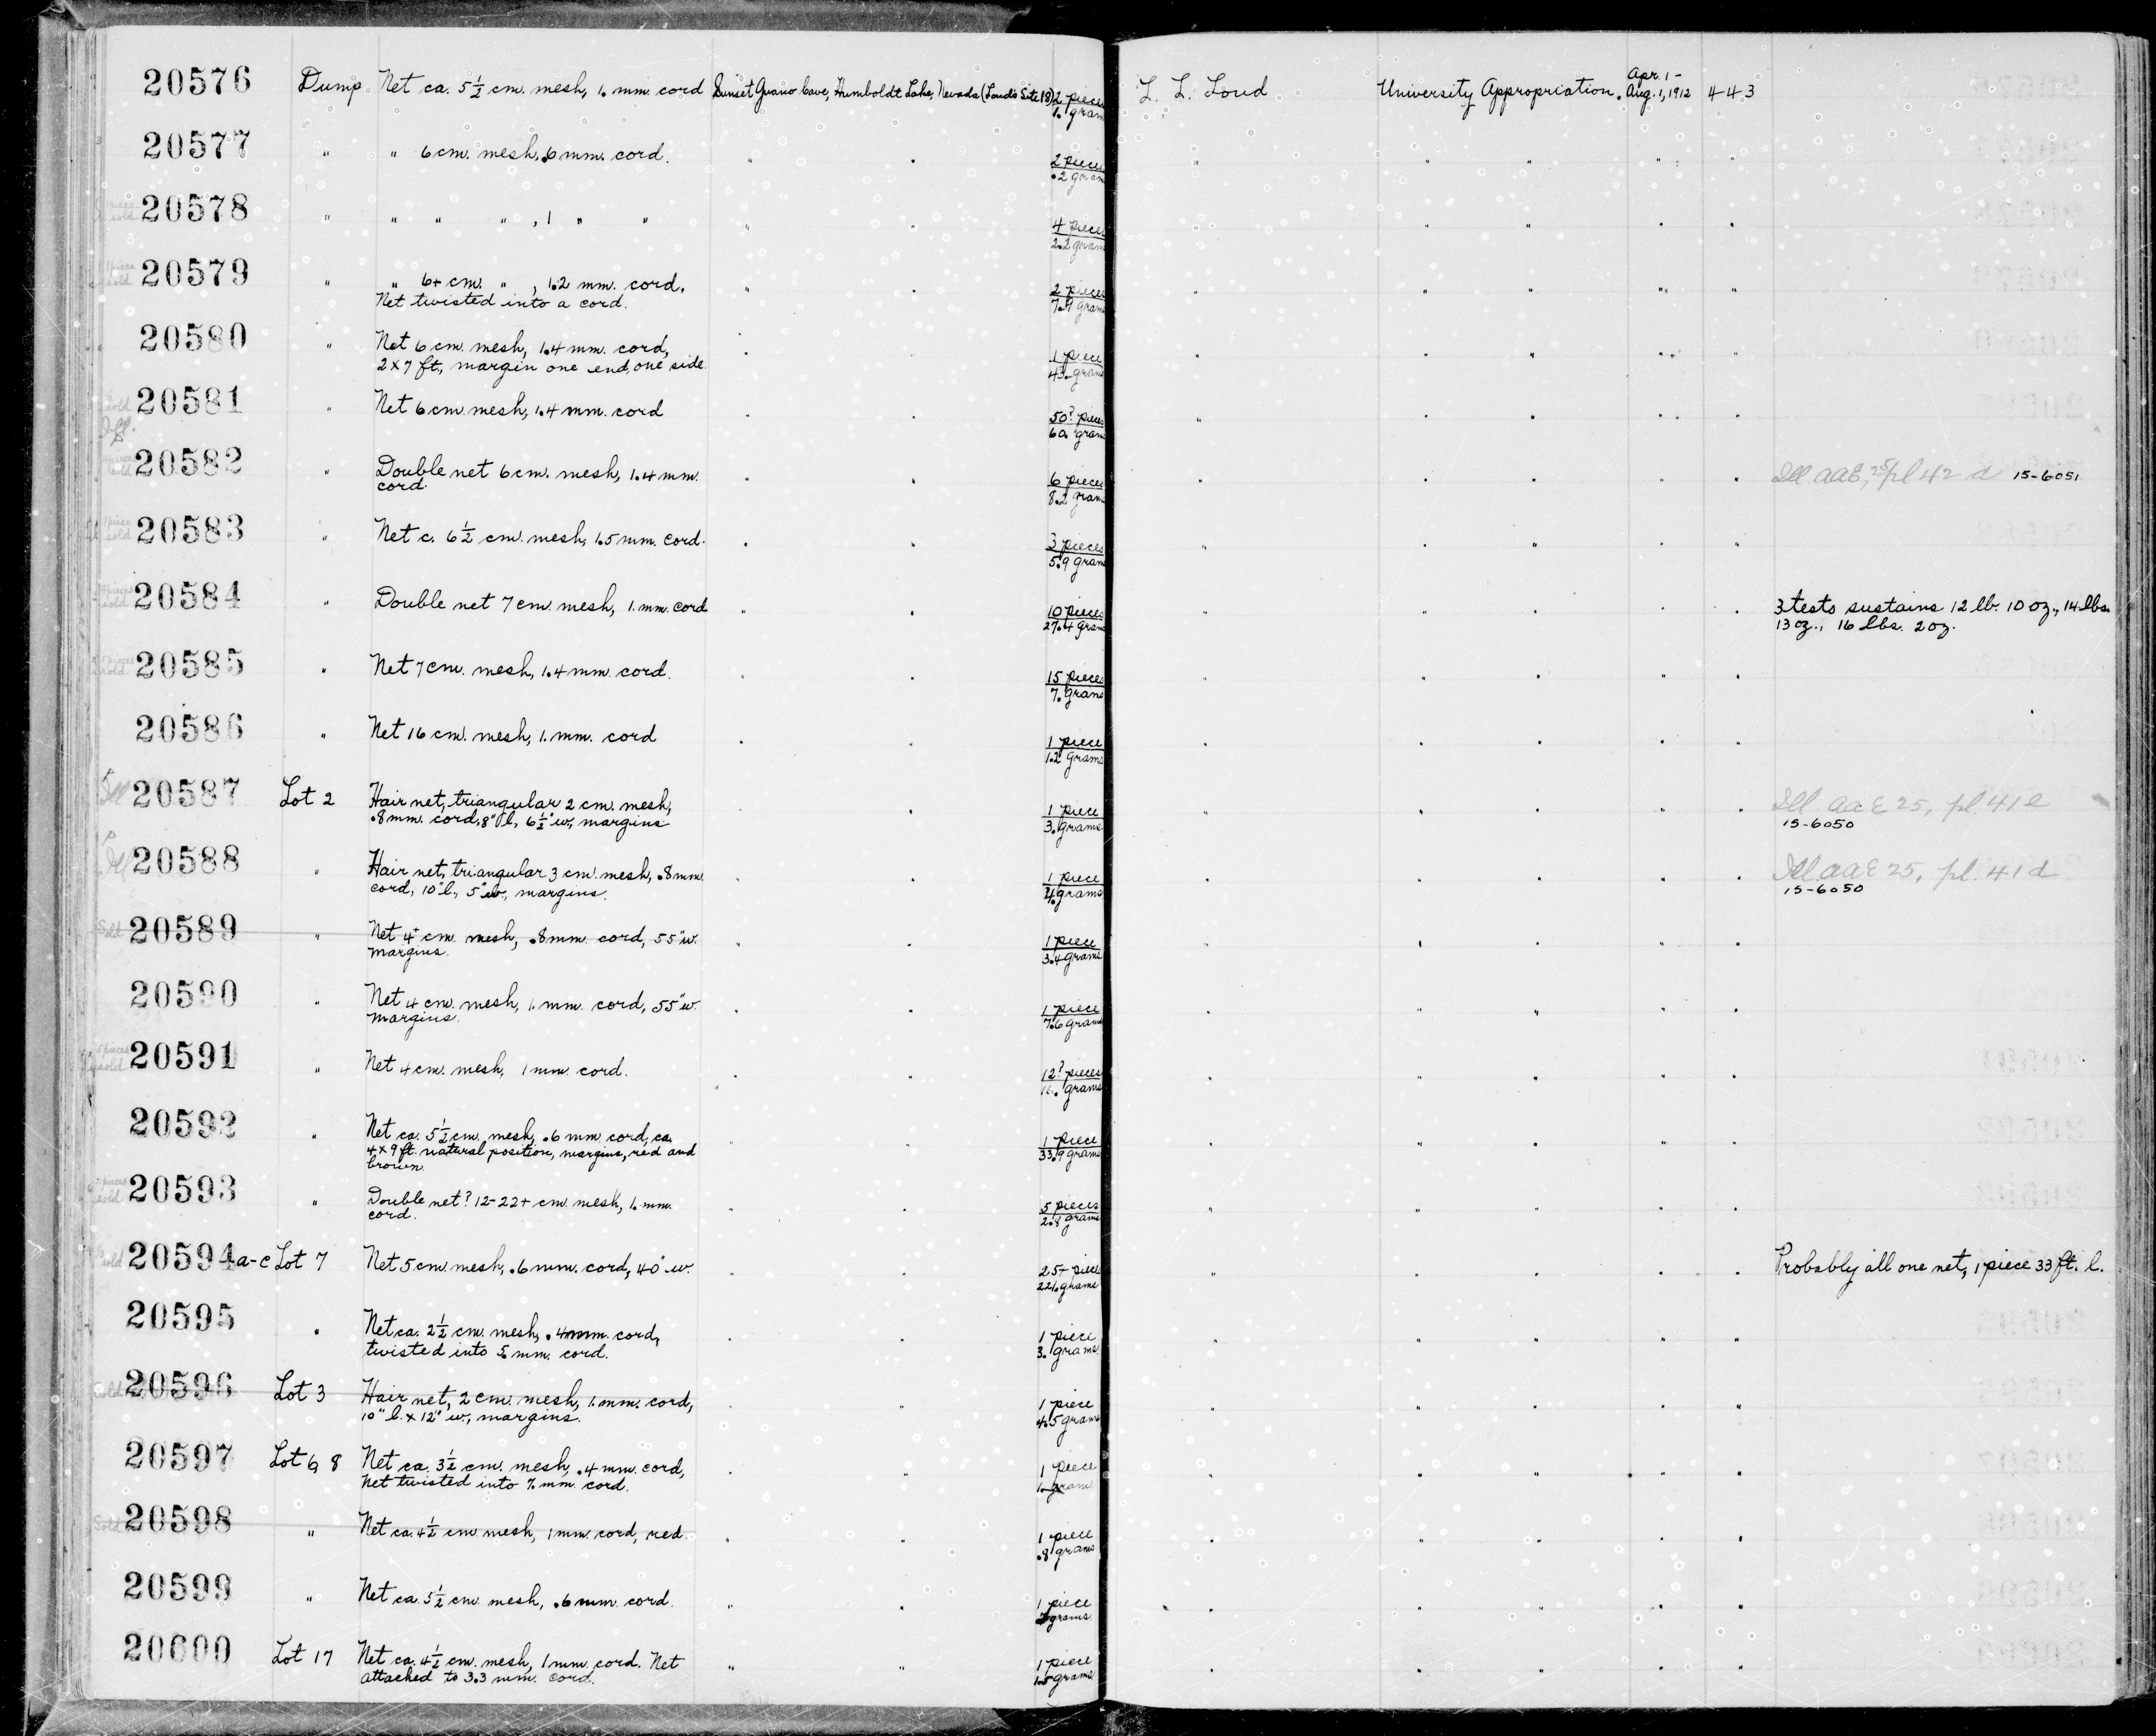 20576 Dump Net ca. 5½ cm. mesh, 1. mm. cord Sunset Guano Cave, Humboldt Lake, Nevada (Loud's Site 18) 2 pieces L. L. Loud University Appropriation. Apr. 1 - Aug. 1, 1912 443
1. gram
20577 " " 6 cm. mesh, .6 mm. cord. " " 2 pieces " " " " "
.2 gram
20578 " " " " , 1 " " " " 4 pieces " " " " "
2.2 grams
20579 " " 6+ cm. " , 1.2 mm. cord. " " 2 pieces " " " " "
Net twisted into a cord. 7.9 grams
20580 " Net 6 cm. mesh, 1.4 mm. cord, " " 1 piece " " " " "
2 x 7 ft, margin one end, one side. 43. grams
20581 " Net 6 cm mesh, 1.4 mm. cord " " 50? pieces " " " " "
60. grams
20582 " Double net 6 cm. mesh, 1.4 mm. " " 6 pieces " " " " " Ill AAE, 25, pl 42 d 15-6051
cord. 8.2 gram
20583 " Net c. 6½ cm. mesh, 1.5 mm. cord. " " 3 pieces " " " " "
5.9 grams
20584 " Double net 7 cm. mesh, 1. mm. cord " " 10 pieces " " " " " 3 tests sustains 12 lb. 10 oz., 14 lbs.
27.4 grams 13 oz., 16 lbs. 2 oz.
20585 " Net 7 cm. mesh, 1.4 mm. cord. " " 15 pieces " " " " "
7. grams
20586 " Net 16 cm. mesh, 1. mm. cord " " 1 piece " " " " "
1.2 grams
Ill 20587 Lot 2 Hair net, triangular 2 cm. mesh, " " 1 piece " " " " " Ill AAE 25, pl 41 e
.8 mm. cord, 8" l, 6½" w., margins 3. grams 15-6050
Ill 20588 " Hair net, triangular 3 cm. mesh, .8 mm. " " 1 piece " " " " " Ill AAE 25, pl. 41 d
cord, 10" l., 5" w., margins. 4. grams 15-6050
Sold 20589 " Net 4 cm. mesh, .8 mm. cord, 55" w. " " 1 piece " " " " "
margins. 3.4 grams
20590 " Net 4 cm. mesh, 1. mm. cord, 55" w. " " 1 piece " " " " "
margins. 7.6 grams
5 pieces sold 20591 " Net 4 cm. mesh, 1 mm. cord. " " 12? pieces " " " " "
grams
20592 " Net ca. 5½ cm. mesh, .6 mm. cord, ca. " " 1 piece " " " " "
4 x 9 ft. natural position, margins, red and 33.9 grams
brown.
pieces sold 20593 " Double net? 12-22+ cm. mesh, 1. mm. " " 5 pieces " " " " "
cord. 2.8 grams
sold 20594 a-c Lot 7 Net 5 cm. mesh, .6 mm. cord, 40" w. " " 25+ piece " " " " " Probably all one net, 1 piece 33 ft. l.
221. grams
20595 " Net ca. 2½ cm. mesh, .4 mm. cord, " " 1 piece " " " " "
twisted into 5. mm. cord. 3. grams
Sold 20596 Lot 3 Hair net, 2 cm. mesh, 1. mm. cord, " " 1 piece " " " " "
10" l. x 12" w., margins. 4.5 grams
20597 Lot 6, 8 Net ca. 3½ cm. mesh, .4 mm. cord, " " 1 piece " " " " "
Net twisted into 7. mm. cord. 1. gram
Sold 20598 " Net ca. 4½ cm mesh, 1 mm. cord, red. " " 1 piece " " " " "
.8 grams
20599 " Net ca. 5½ cm. mesh, .6 mm. cord. " " 1 piece " " " " "
grams
20600 Lot 17 Net ca. 4½ cm. mesh, 1 mm. cord. Net " " 1 piece " " " " "
attached to 3.3 mm. cord. 1.5 grams